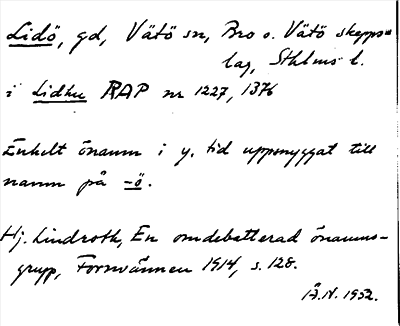 Lidö, gd, Vätö sn, Bro o. Vätö skepps-
lag, Sthlms l.
i Lidhu RAP nr 1227, 1376
Enkelt önamn i y. tid uppsnyggat till
namn på -ö.
Hj. Lindroth, En omdebatterad önamns-
grupp, Fornvännen 1914, s. 128.
Å.N. 1952.